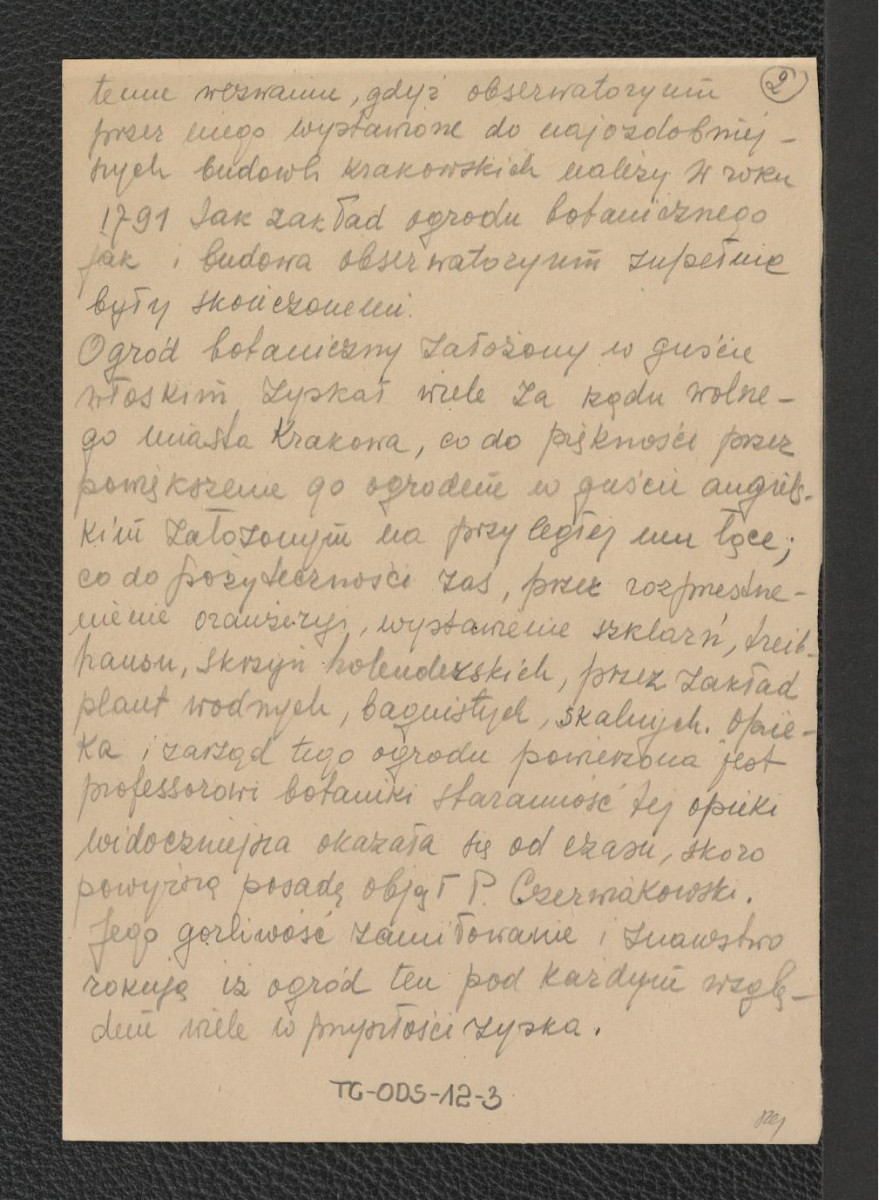 temu wezwaniu, gdyż obserwatoryum 2
przez niego wystawione do najozdobniej-
szych budowli Krakowskich należy W roku
1791 Jak zakład ogrodu botanicznego
jak i budowa obserwatoryum zupełnie
były skończonemi.
Ogród botaniczny założony w guście
włoskim zyskał wiele za rządu wolne-
go miasta Krakowa, co do piękności przez
powiększenie go ogrodem w guście angiels-
kim założonym na przyległej mu łące;
co do pożyteczności zaś, przez rozprestrze-
nienie oranżeryi, wystawienie szklarń, treib-
hausu, skrzyń holenderskich, przez zakład
plant wodnych, bagnistych, skalnych. Opie-
ka i zarząd tego ogrodu powierzona jest
professorowi botaniki staranność tej opieki
widoczniejsza okazała się od czasu, skoro
powyższą posadę objął P. Czerwiakowski.
Jego gorliwość zamiłowanie i znawstwo
rokują iż ogród ten pod każdym wzglę-
dem wiele w przyszłości zyska.
TG-ODS-12-3